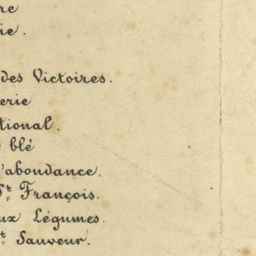 re
ie.
des Victoires.
erie
tional.
blé
'abondance.
St. François.
ux Légumes.
t. Sauveur.